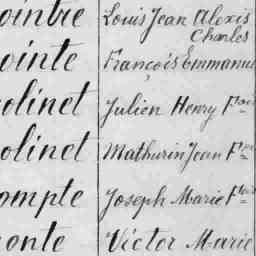 ointre Louis Jean Alexis
Charles
ointe François Emmanue
olinet Julien Henry Fçois
olinet Mathurin Jean F
ompte Joseph Marie F
onte Victor Marie